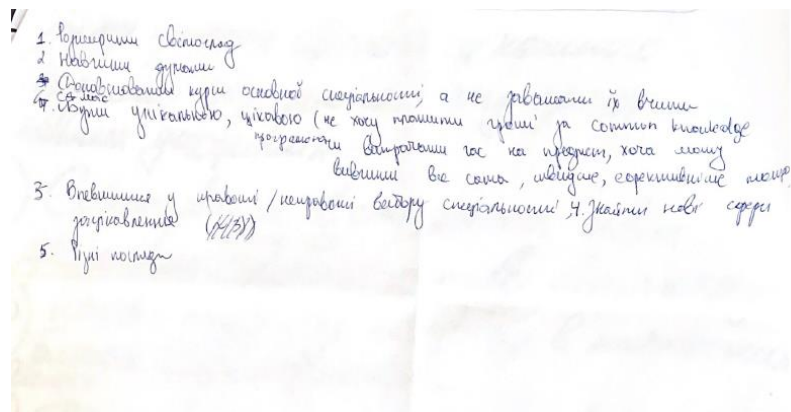 1. Розширити світогляд
2 Навчити думати
Доповнювати курси основної спеціальності, а не заважати їх вчити
має бути унікальною, цікавою (не хочу платити гроші за common knowledge
програмою чи витрачати час на предмет, хоча можу
вивчити все сама, швидше, ефективніше тощо
3. Впевнитися у правоті / неправоті вибору спеціальності, 4. Знайти нові сфери
зацікавлення
5. Різні погляди